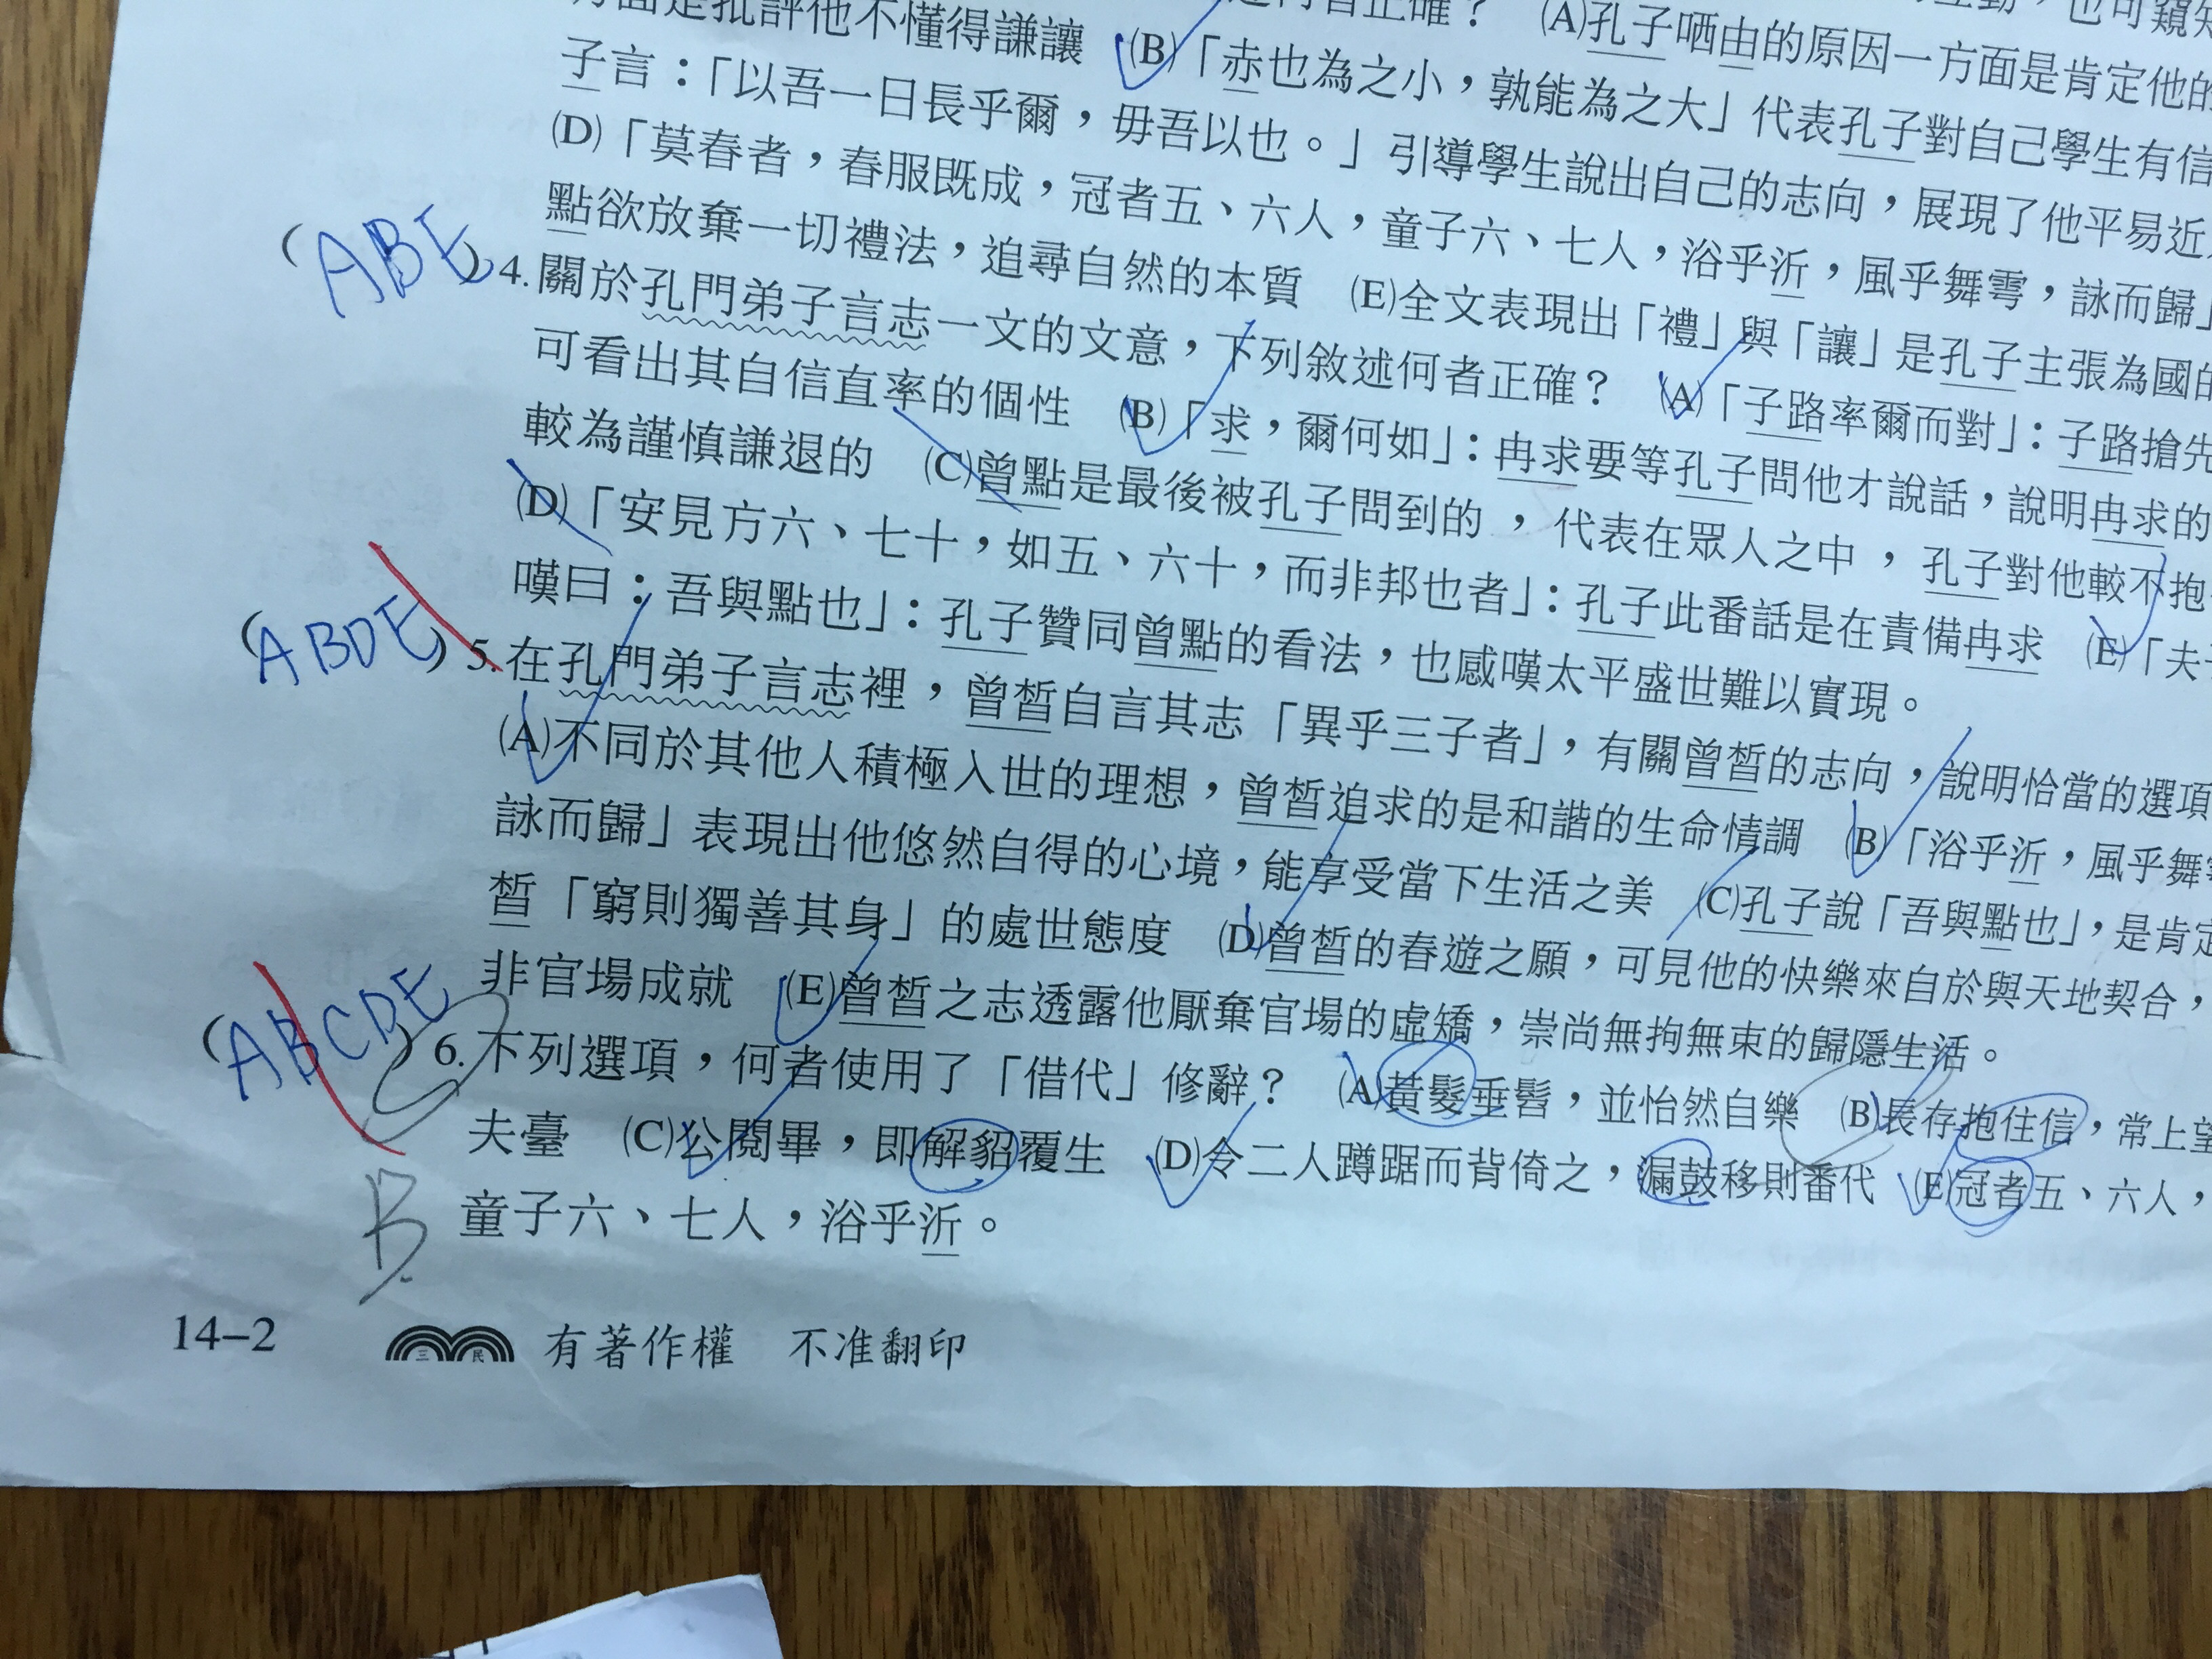 方面是批評他不懂得謙讓 (B)「赤也為之小，孰能為之大」代表孔子對自己學生有信
者正確？ (A)孔子哂由的原因一方面是肯定他的
子言：「以吾一日長乎爾，毋吾以也。」引導學生說出自己的志向，展現了他平易近
(D)「莫春者，春服既成，冠者五、六人，童子六、七人，浴乎沂，風乎舞雩，詠而歸」
點欲放棄一切禮法，追尋自然的本質 (E)全文表現出「禮」與「讓」是孔子主張為國的
(ABE)4.關於孔門弟子言志一文的文意，下列敘述何者正確？ (A)「子路率爾而對」：子路搶先
可看出其自信直率的個性 (B)「求，爾何如」：冉求要等孔子問他才說話，說明冉求的
較為謹慎謙退的 (C)曾點是最後被孔子問到的，代表在眾人之中，孔子對他較不抱
(D)「安見方六、七十，如五、六十，而非邦也者」：孔子此番話是在責備冉求 (E)「夫子
嘆曰：吾與點也」：孔子贊同曾點的看法，也感嘆太平盛世難以實現。
(ABDE)5.在孔門弟子言志裡，曾皙自言其志「異乎三子者」，有關曾皙的志向，說明恰當的選項
(A)不同於其他人積極入世的理想，曾皙追求的是和諧的生命情調 (B)「浴乎沂，風乎舞雩
詠而歸」表現出他悠然自得的心境，能享受當下生活之美 (C)孔子說「吾與點也」，是肯定
皙「窮則獨善其身」的處世態度 (D)曾皙的春遊之願，可見他的快樂來自於與天地契合，
非官場成就 (E)曾皙之志透露他厭棄官場的虛矯，崇尚無拘無束的歸隱生活。
(ABCDE)6.下列選項，何者使用了「借代」修辭？ (A)黃髮垂髫，並怡然自樂 (B)長存抱住信，常上望
夫臺 (C)公閱畢，即解貂覆生 (D)令二人蹲踞而背倚之，漏鼓移則番代 (E)冠者五、六人，
童子六、七人，浴乎沂。
B
14-2 三民 有著作權 不准翻印